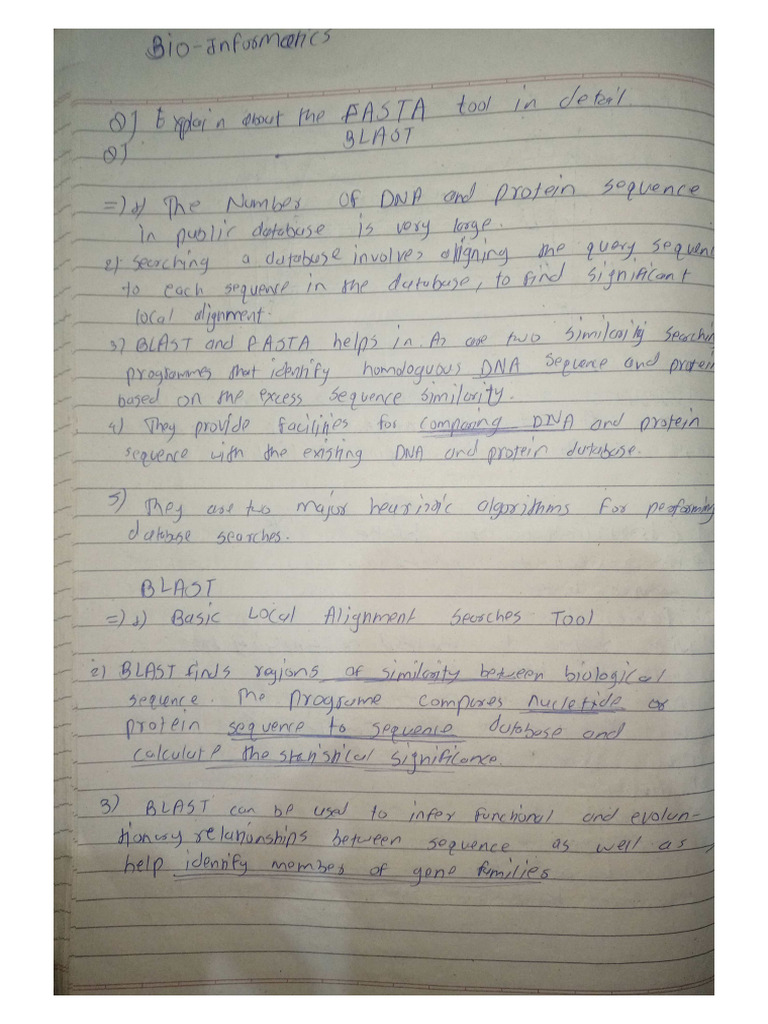 Bio-Informatics
Q] Explain about the FASTA tool in detail
Q] BLAST
=> 1) The Number of DNA and protein sequence
in public database is very large.
2) Searching a database involves aligning the query sequenc
to each sequence in the database, to find significant
local alignment.
3) BLAST and FASTA helps in As are two similarity searchin
programmes that identify homologuous DNA sequence and protein
based on the excess sequence similarity.
4) They provide facilities for comparing DNA and protein
sequence with the existing DNA and protein database.
5) They are two major heuristic algorithms for performing
database searches.
BLAST
=> 1) Basic Local Alignment Searches Tool
2) BLAST finds regions of similarity between biological
sequence. The programe compares nucletide or
protein sequence to sequence database and
calculate the statistical significance.
3) BLAST can be used to infer functional and evolun-
tionary relationships between sequence as well as,
help identify member of gene families